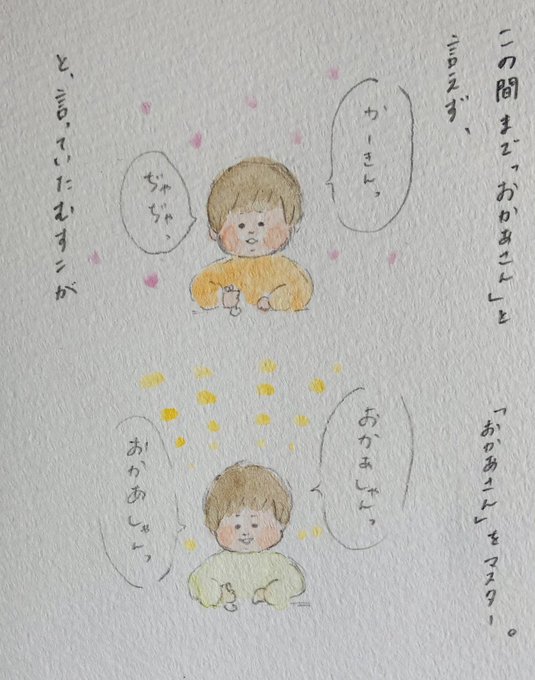 この間まで「おかあさん」と
言えず、
かーきんっ
ぢゃぢゃっ
と、言っていたむすこが
「おかあさん」をマスター。
おかあしゃんっ
おかあしゃんっ